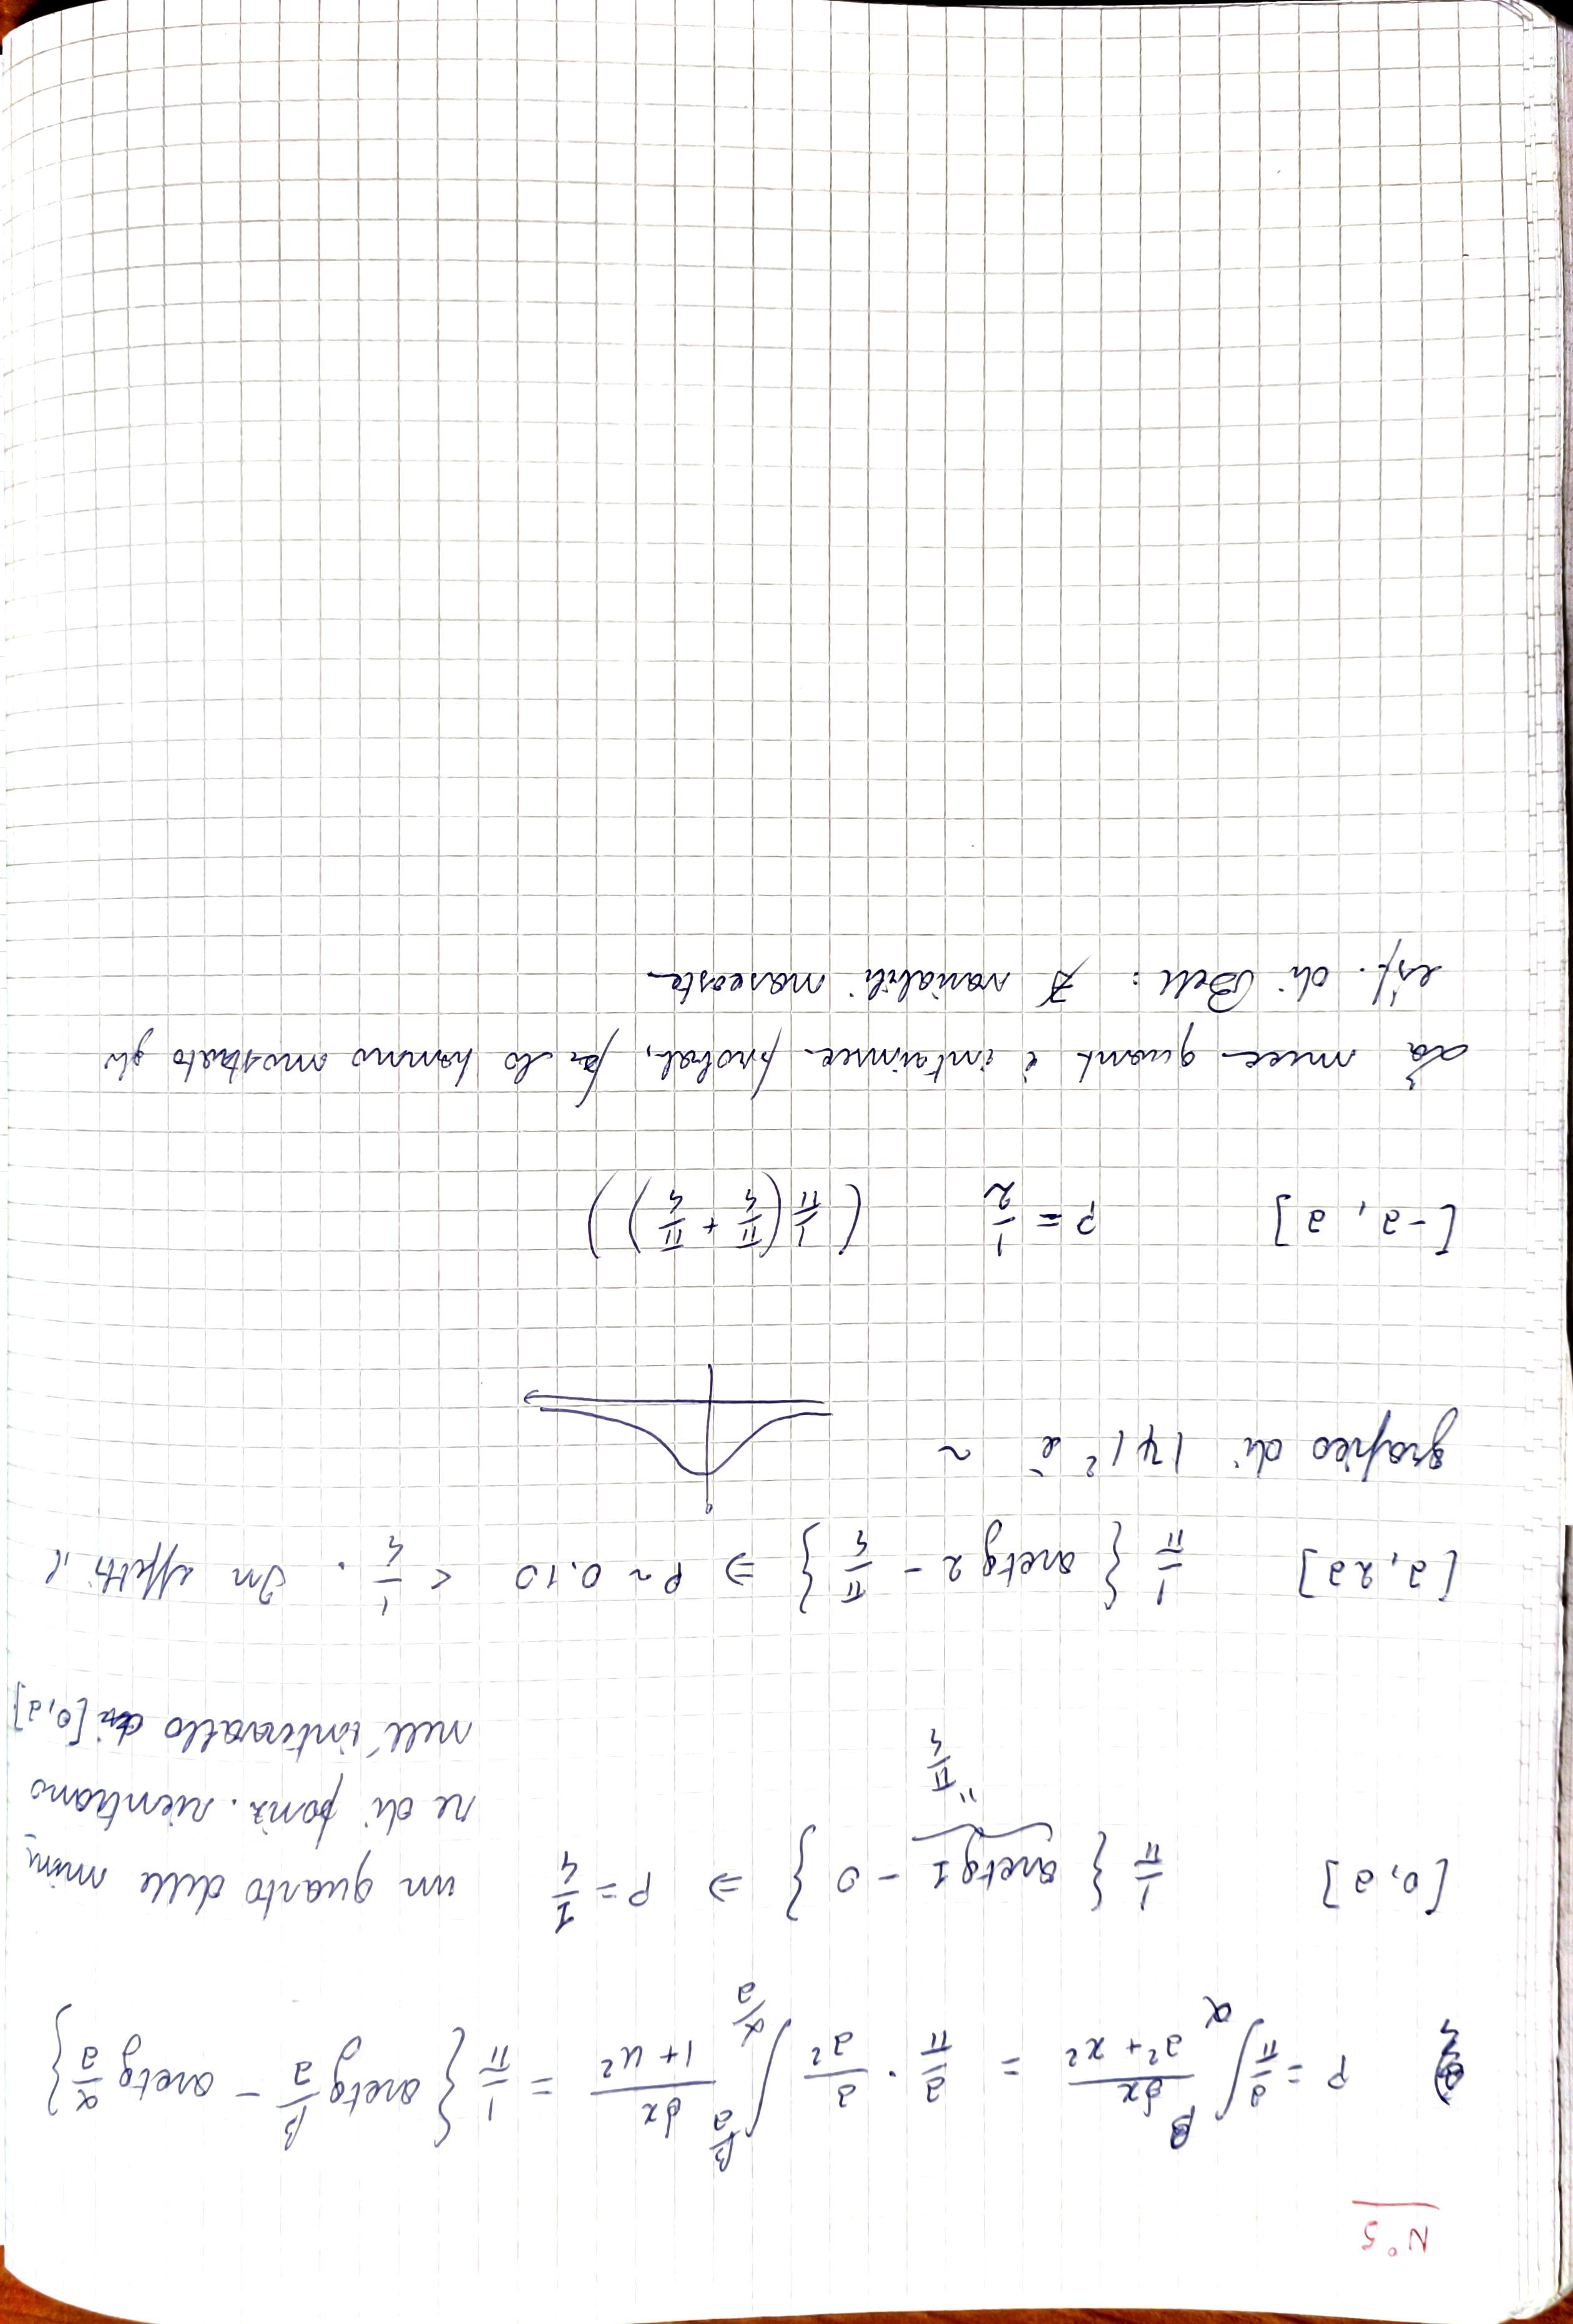 N° 5
P = a/π ∫_α^β dx/(a² + x²) = a/π · a/a² ∫_{α/a}^{β/a} dx/(1 + u²) = 1/π { arctg β/a - arctg α/a }
[0, a] 1/π { arctg 1 - 0 } ⇒ P = 1/4 un quarto delle misu
" π/4
re di posiz. rientrano
nell'intervallo [0, a]
[a, 2a] 1/π { arctg 2 - π/4 } ⇒ P ~ 0.10 < 1/4 . In effetti il
grafico di |ψ|² è ~
[-a, a] P = 1/2 ( 1/π ( π/4 + π/4 ) )
mecc quant è intrinsec probab, lo hanno mostrato gli
esp. di Bell : ∄ variabili nascoste